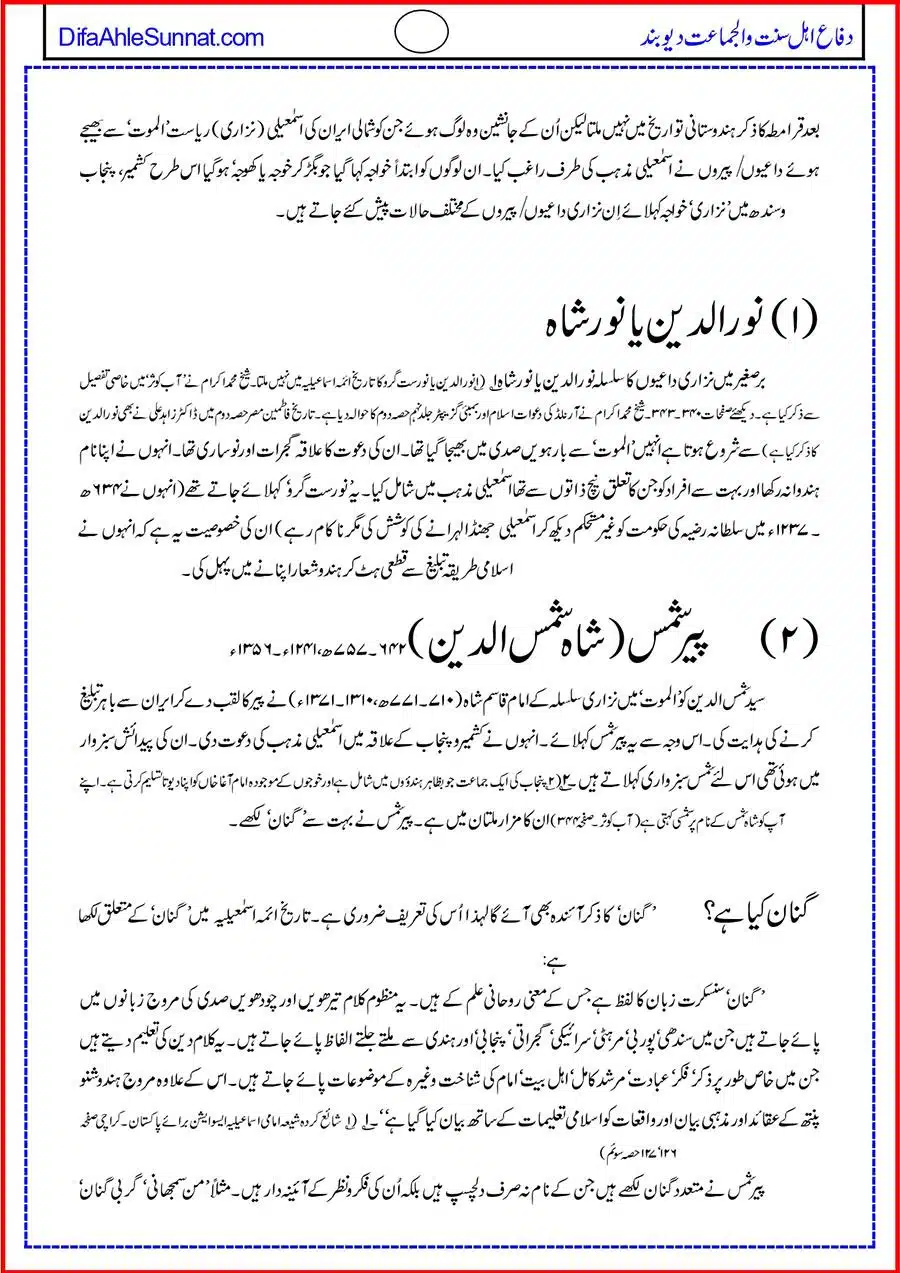 DifaAhleSunnat.com
دفاع اہل سنت والجماعت دیوبند
بعد قرامطہ کا ذکر ہندوستانی تواریخ میں نہیں ملتا لیکن اُن کے جانشین وہ لوگ ہوئے جن کو شمالی ایران کی اسمٰعیلی (نزاری) ریاست ’الموت‘ سے بھیجے
ہوئے داعیوں/ پیروں نے اسمٰعیلی مذہب کی طرف راغب کیا۔ ان لوگوں کو ابتداً خواجہ کہا گیا جو بگڑ کر خوجہ یا کھوجہ ہو گیا اس طرح کشمیر، پنجاب
وسندھ میں ’نزاری‘ خواجہ کہلائے اِن نزاری داعیوں/ پیروں کے مختلف حالات پیش کئے جاتے ہیں۔
(۱) نورالدین یا نور شاہ
برصغیر میں نزاری داعیوں کا سلسلہ نورالدین یا نور شاہ ۱؎ (۱؎ نورالدین یا نورست گرو کا تاریخ ائمہ اسماعیلیہ میں نہیں ملتا۔ شیخ محمد اکرام نے ’آب کوثر‘ میں خاصی تفصیل
سے ذکر کیا ہے۔ دیکھئے صفحات ۳۴۰۔۳۴۳۔ شیخ محمد اکرام نے آرنلڈ کی دعوات اسلام اور بمبئی گزیٹیئر جلد نہم حصہ دوم کا حوالہ دیا ہے۔ تاریخ فاطمین مصر حصہ دوم میں ڈاکٹر زاہد علی نے بھی نورالدین
کا ذکر کیا ہے) سے شروع ہوتا ہے انہیں ’الموت‘ سے بارہویں صدی میں بھیجا گیا تھا۔ ان کی دعوت کا علاقہ گجرات اور نوساری تھا۔ انہوں نے اپنا نام
ہندوانہ رکھا اور بہت سے افراد کو جن کا تعلق نیچ ذاتوں سے تھا اسمٰعیلی مذہب میں شامل کیا۔ یہ ’نورست گرو‘ کہلائے جاتے تھے (انہوں نے ۶۳۴ھ
۔۱۲۳۷ء میں سلطانہ رضیہ کی حکومت کو غیر مستحکم دیکھ کر اسمٰعیلی جھنڈا لہرانے کی کوشش کی مگر ناکام رہے) ان کی خصوصیت یہ ہے کہ انہوں نے
اسلامی طریقہ تبلیغ سے قطعی ہٹ کر ہندو شعار اپنانے میں پہل کی۔
(۲) پیر شمس (شاہ شمس الدین) ۶۴۲۔۷۵۷ھ، ۱۲۴۱ء۔۱۳۵۶ء
سید شمس الدین کو ’الموت‘ میں نزاری سلسلہ کے امام قاسم شاہ (۷۱۰۔۷۷۱ھ، ۱۳۱۰۔۱۳۷۱ء) نے پیر کا لقب دے کر ایران سے باہر تبلیغ
کرنے کی ہدایت کی۔ اس وجہ سے یہ پیر شمس کہلائے۔ انہوں نے کشمیر و پنجاب کے علاقہ میں اسمٰعیلی مذہب کی دعوت دی۔ ان کی پیدائش سبزوار
میں ہوئی تھی اس لئے شمس سبزواری کہلاتے ہیں ۲؎ (۲؎ پنجاب کی ایک جماعت جو بظاہر ہندوؤں میں شامل ہے اور خوجوں کے موجودہ امام آغا خاں کو اپنا دیوتا تسلیم کرتی ہے۔ اپنے
آپ کو شاہ شمس کے نام پر شمسی کہتی ہے (آب کوثر۔ صفحہ ۳۴۴) ان کا مزار ملتان میں ہے۔ پیر شمس نے بہت سے ’گنان‘ لکھے۔
گنان کیا ہے؟ ’گنان‘ کا ذکر آئندہ بھی آئے گا لہٰذا اُس کی تعریف ضروری ہے۔ تاریخ ائمہ اسمٰعیلیہ میں ’گنان‘ کے متعلق لکھا
ہے:
’گنان‘ سنسکرت زبان کا لفظ ہے جس کے معنی روحانی علم کے ہیں۔ یہ منظوم کلام تیرھویں اور چودھویں صدی کی مروج زبانوں میں
پائے جاتے ہیں جن میں سندھی‘ پوربی‘ مرہٹی‘ سرائیکی‘ گجراتی‘ پنجابی‘ اور ہندی سے ملتے جلتے الفاظ پائے جاتے ہیں۔ یہ کلام دین کی تعلیم دیتے ہیں
جن میں خاص طور پر ذکر‘ فکر‘ عبادت‘ مرشد کامل‘ اہل بیت‘ امام کی شناخت وغیرہ کے موضوعات پائے جاتے ہیں۔ اس کے علاوہ مروج ہندو شنو
پنتھ کے عقائد اور مذہبی بیان اور واقعات کو اسلامی تعلیمات کے ساتھ بیان کیا گیا ہے‘‘۔ ۱؎ (۱؎ شائع کردہ شیعہ امامی اسماعیلیہ ایسوایشن برائے پاکستان۔ کراچی صفحہ
۱۲۶‘ ۱۲۷ حصہ سوئم)
پیر شمس نے متعدد گنان لکھے ہیں جن کے نام نہ صرف دلچسپ ہیں بلکہ اُن کی فکر و نظر کے آئینہ دار ہیں۔ مثلاً ’من سمجھانی‘ گربی گنان‘